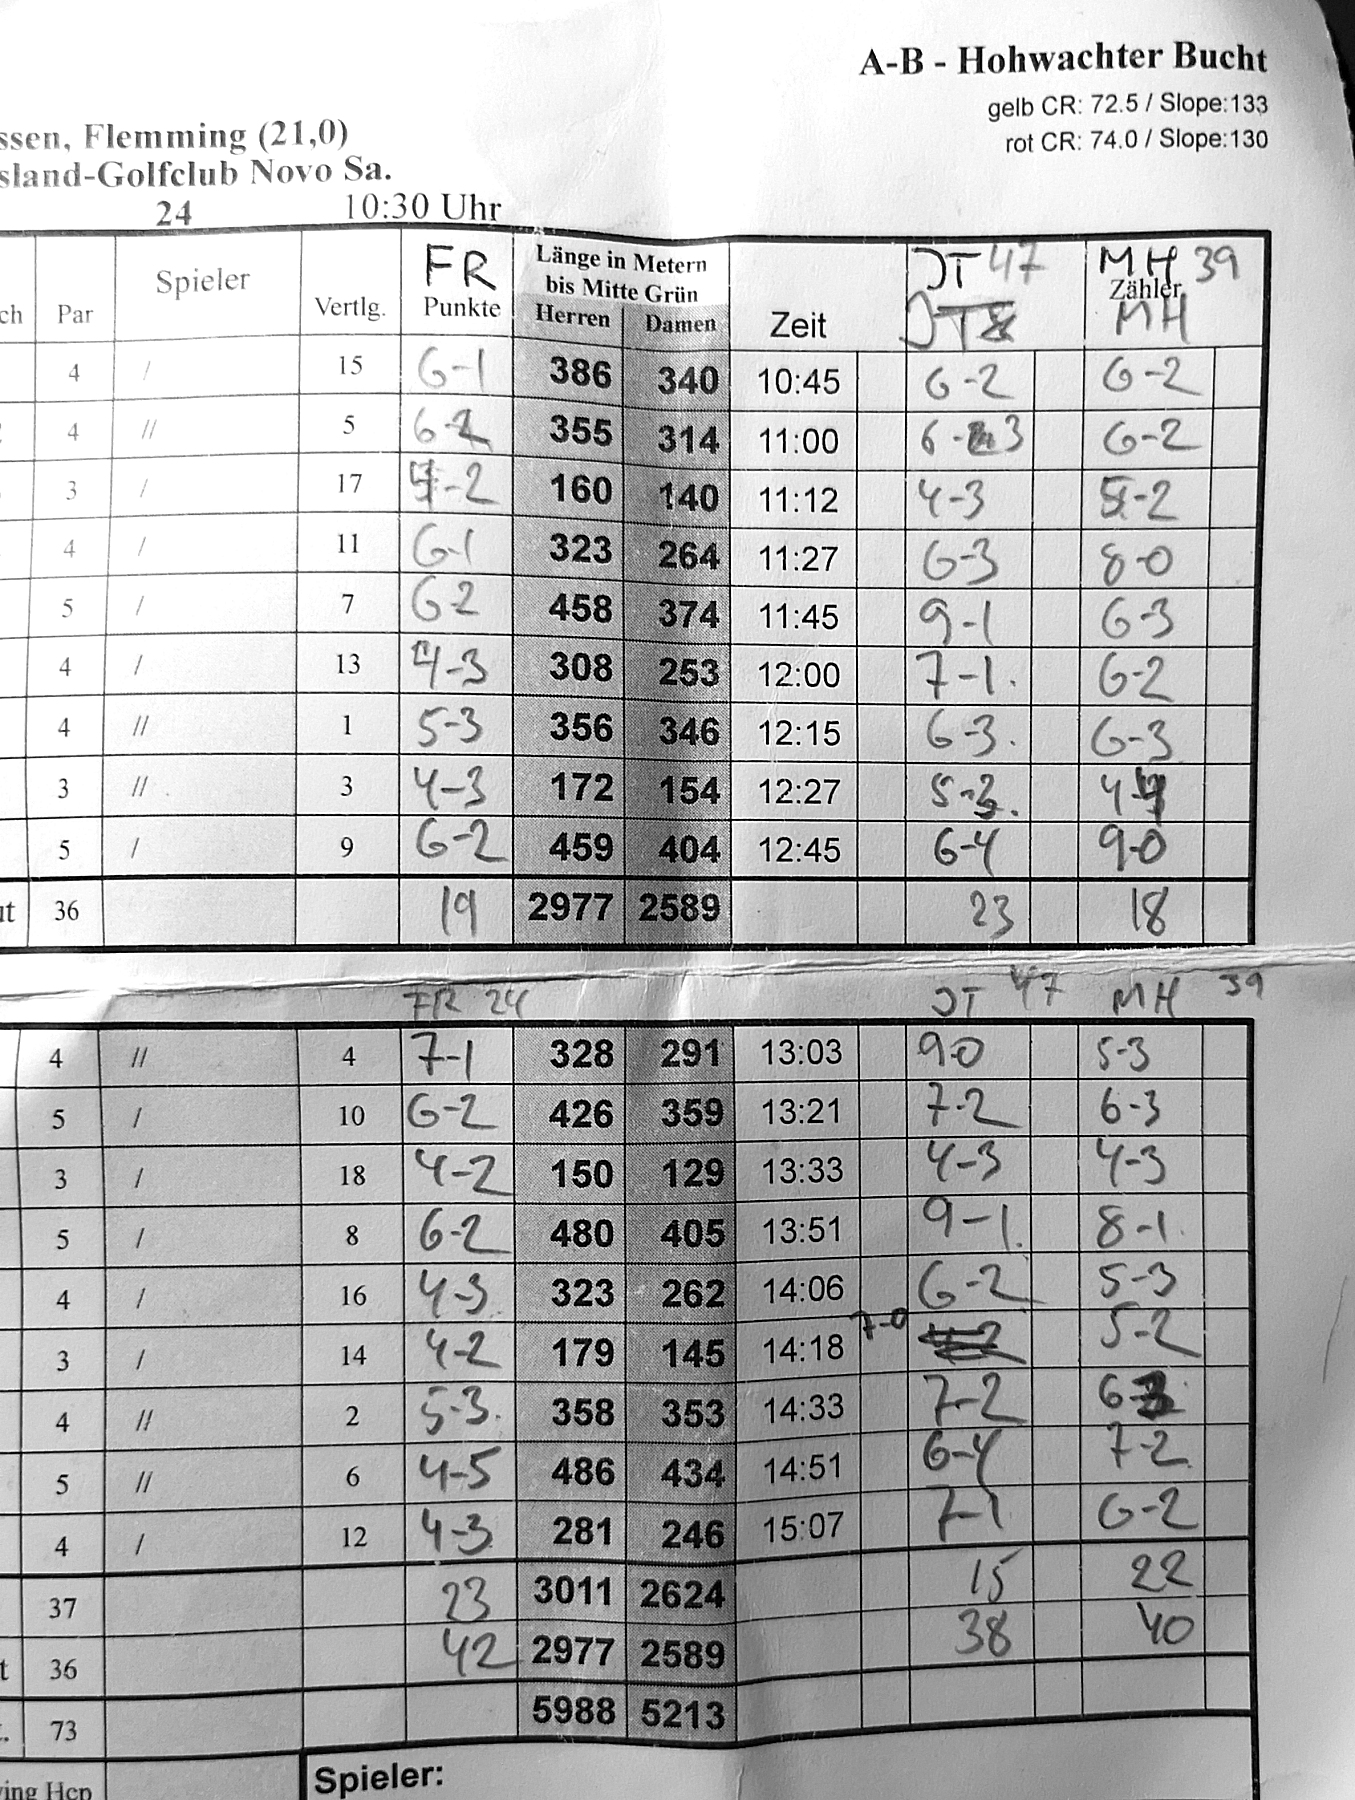 A-B - Hohwachter Bucht
gelb CR: 72.5 / Slope:133
rot CR: 74.0 / Slope:130
ssen, Flemming (21,0)
sland-Golfclub Novo Sa.
24 10:30 Uhr
FR Länge in Metern JT 47 MH 39
Spieler bis Mitte Grün Zähler
ch Par Vertlg. Punkte Herren Damen Zeit MH
4 / 15 6-1 386 340 10:45 6-2 6-2
4 // 5 6- 355 314 11:00 6-3 6-2
3 / 17 -2 160 140 11:12 4-3 5-2
4 / 11 6-1 323 264 11:27 6-3 8-0
5 / 7 6-2 458 374 11:45 9-1 6-3
4 / 13 4-3 308 253 12:00 7-1. 6-2
4 // 1 5-3 356 346 12:15 6-3. 6-3
3 // 3 4-3 172 154 12:27 5-3. 4-4
5 / 9 6-2 459 404 12:45 6-4 9-0
ut 36 19 2977 2589 23 18
FR 24 JT 47 MH 39
4 // 4 7-1 328 291 13:03 9-0 5-3
5 / 10 6-2 426 359 13:21 7-2 6-3
3 / 18 4-2 150 129 13:33 4-3 4-3
5 / 8 6-2 480 405 13:51 9-1. 8-1.
4 / 16 4-3 323 262 14:06 6-2 5-3
3 / 14 4-2 179 145 14:18 7-0 5-2
4 // 2 5-3. 358 353 14:33 7-2 6-3
5 // 6 4-5 486 434 14:51 6-4 7-2
4 / 12 4-3 281 246 15:07 7-1 6-2
37 23 3011 2624 15 22
t 36 42 2977 2589 38 40
. 73 5988 5213
ving Hcp Spieler: